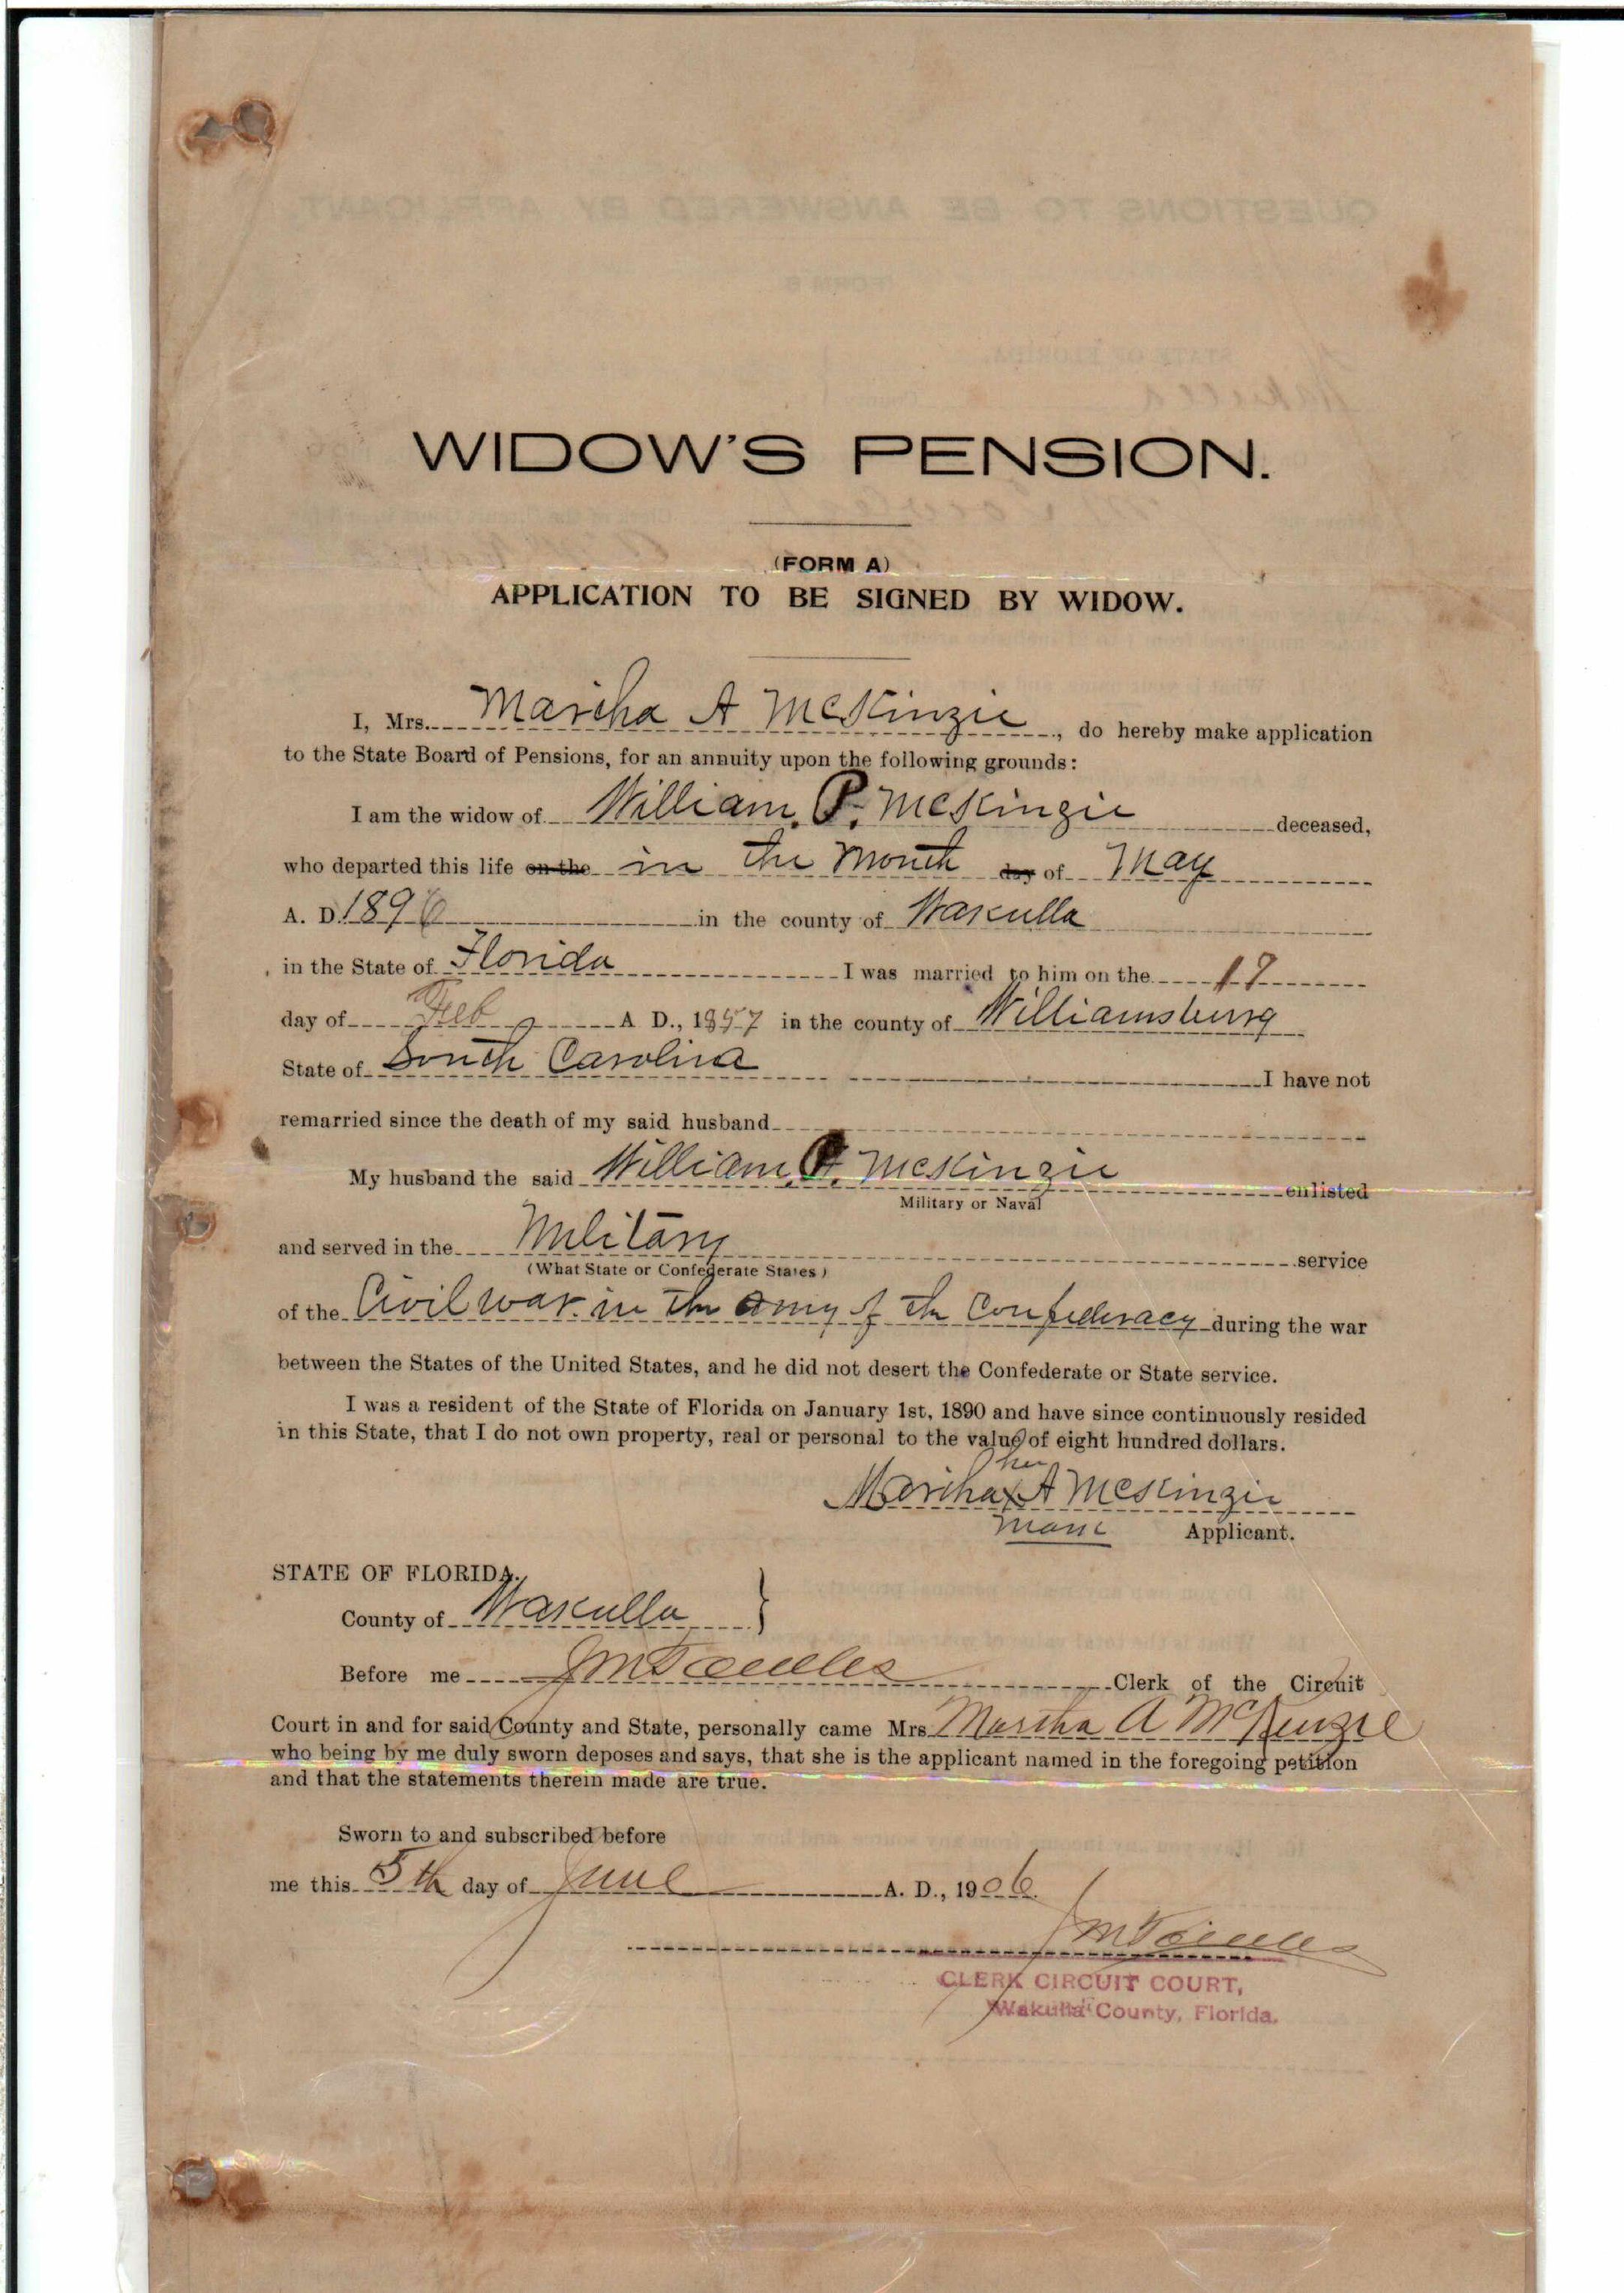 WIDOW'S PENSION.
(FORM A)
APPLICATION TO BE SIGNED BY WIDOW.
I, Mrs. Martha A McKinzie, do hereby make application
to the State Board of Pensions, for an annuity upon the following grounds:
I am the widow of William. P. McKinzie deceased,
who departed this life on the in the Month day of May
A. D. 1896 in the county of Wakulla
in the State of Florida I was married to him on the 17
day of Feb A D., 1857 in the county of Williamsburg
State of South Carolina I have not
remarried since the death of my said husband
My husband the said William. P. McKinzie enlisted
Military or Naval
and served in the Military service
(What State or Confederate States)
of the Civil war in the Army of the Confederacy during the war
between the States of the United States, and he did not desert the Confederate or State service.
I was a resident of the State of Florida on January 1st, 1890 and have since continuously resided
in this State, that I do not own property, real or personal to the value of eight hundred dollars.
her
Martha x A McKinzie
mark Applicant.
STATE OF FLORIDA.
County of Wakulla }
Before me J M Towles Clerk of the Circuit
Court in and for said County and State, personally came Mrs Martha A McKenzie
who being by me duly sworn deposes and says, that she is the applicant named in the foregoing petition
and that the statements therein made are true.
Sworn to and subscribed before
me this 5th day of June A. D., 1906.
J M Towles
CLERK CIRCUIT COURT,
Wakulla County, Florida.